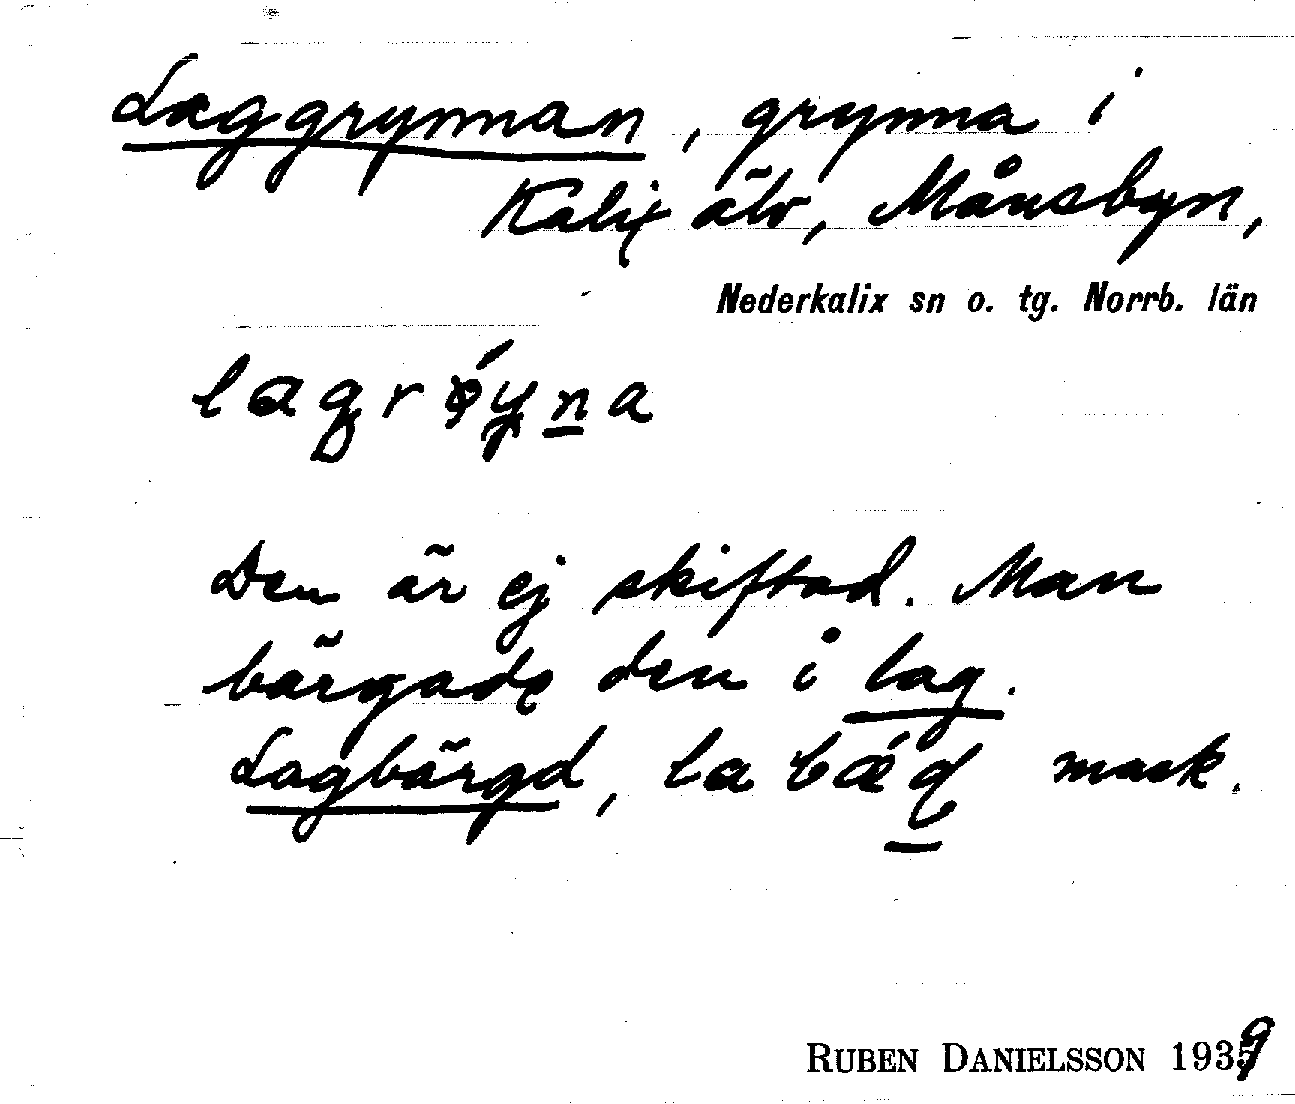 Laggrynnan, grynna i
Kalix älv, Månsbyn,
Nederkalix sn o. tg. Norrb. län
lagrǿyna
Den är ej skiftad. Man
bärgade den i lag.
Lagbärgd, la bǽg mask.
RUBEN DANIELSSON 1939